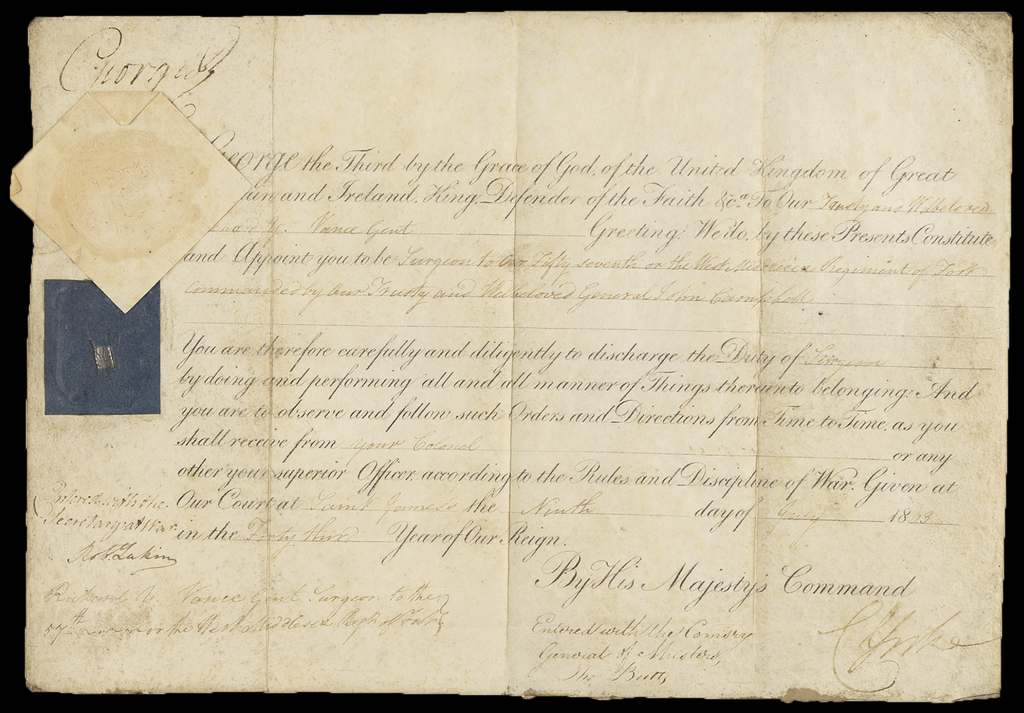 George R
George the Third by the Grace of God, of the United Kingdom of Great
ain and Ireland, King, Defender of the Faith &c.a To Our Trusty and Welbeloved
Vance Gent Greeting: We do, by these Presents Constitute
and Appoint you to be Surgeon to Our Fifty seventh or the West Middlesex Regiment of Foot
Commanded by Our Trusty and Welbeloved General John Campbell
You are therefore carefully and diligently to discharge the Duty of Surgeon
by doing and performing all and all manner of Things thereunto belonging: And
you are to observe and follow such Orders and Directions from Time to Time, as you
shall receive from your Colonel or any
other your superior Officer, according to the Rules and Discipline of War. Given at
Our Court at Saint James's the Ninth day of July 18
in the Forty third Year of Our Reign.
By His Majesty's Command
Entered with the
Secretary at War
Rob. Lukin
Vance Gent Surgeon to the
57th or the West Middlesex Regt of Foot
Entered with the Comsry
General of Musters,
Tho Butts